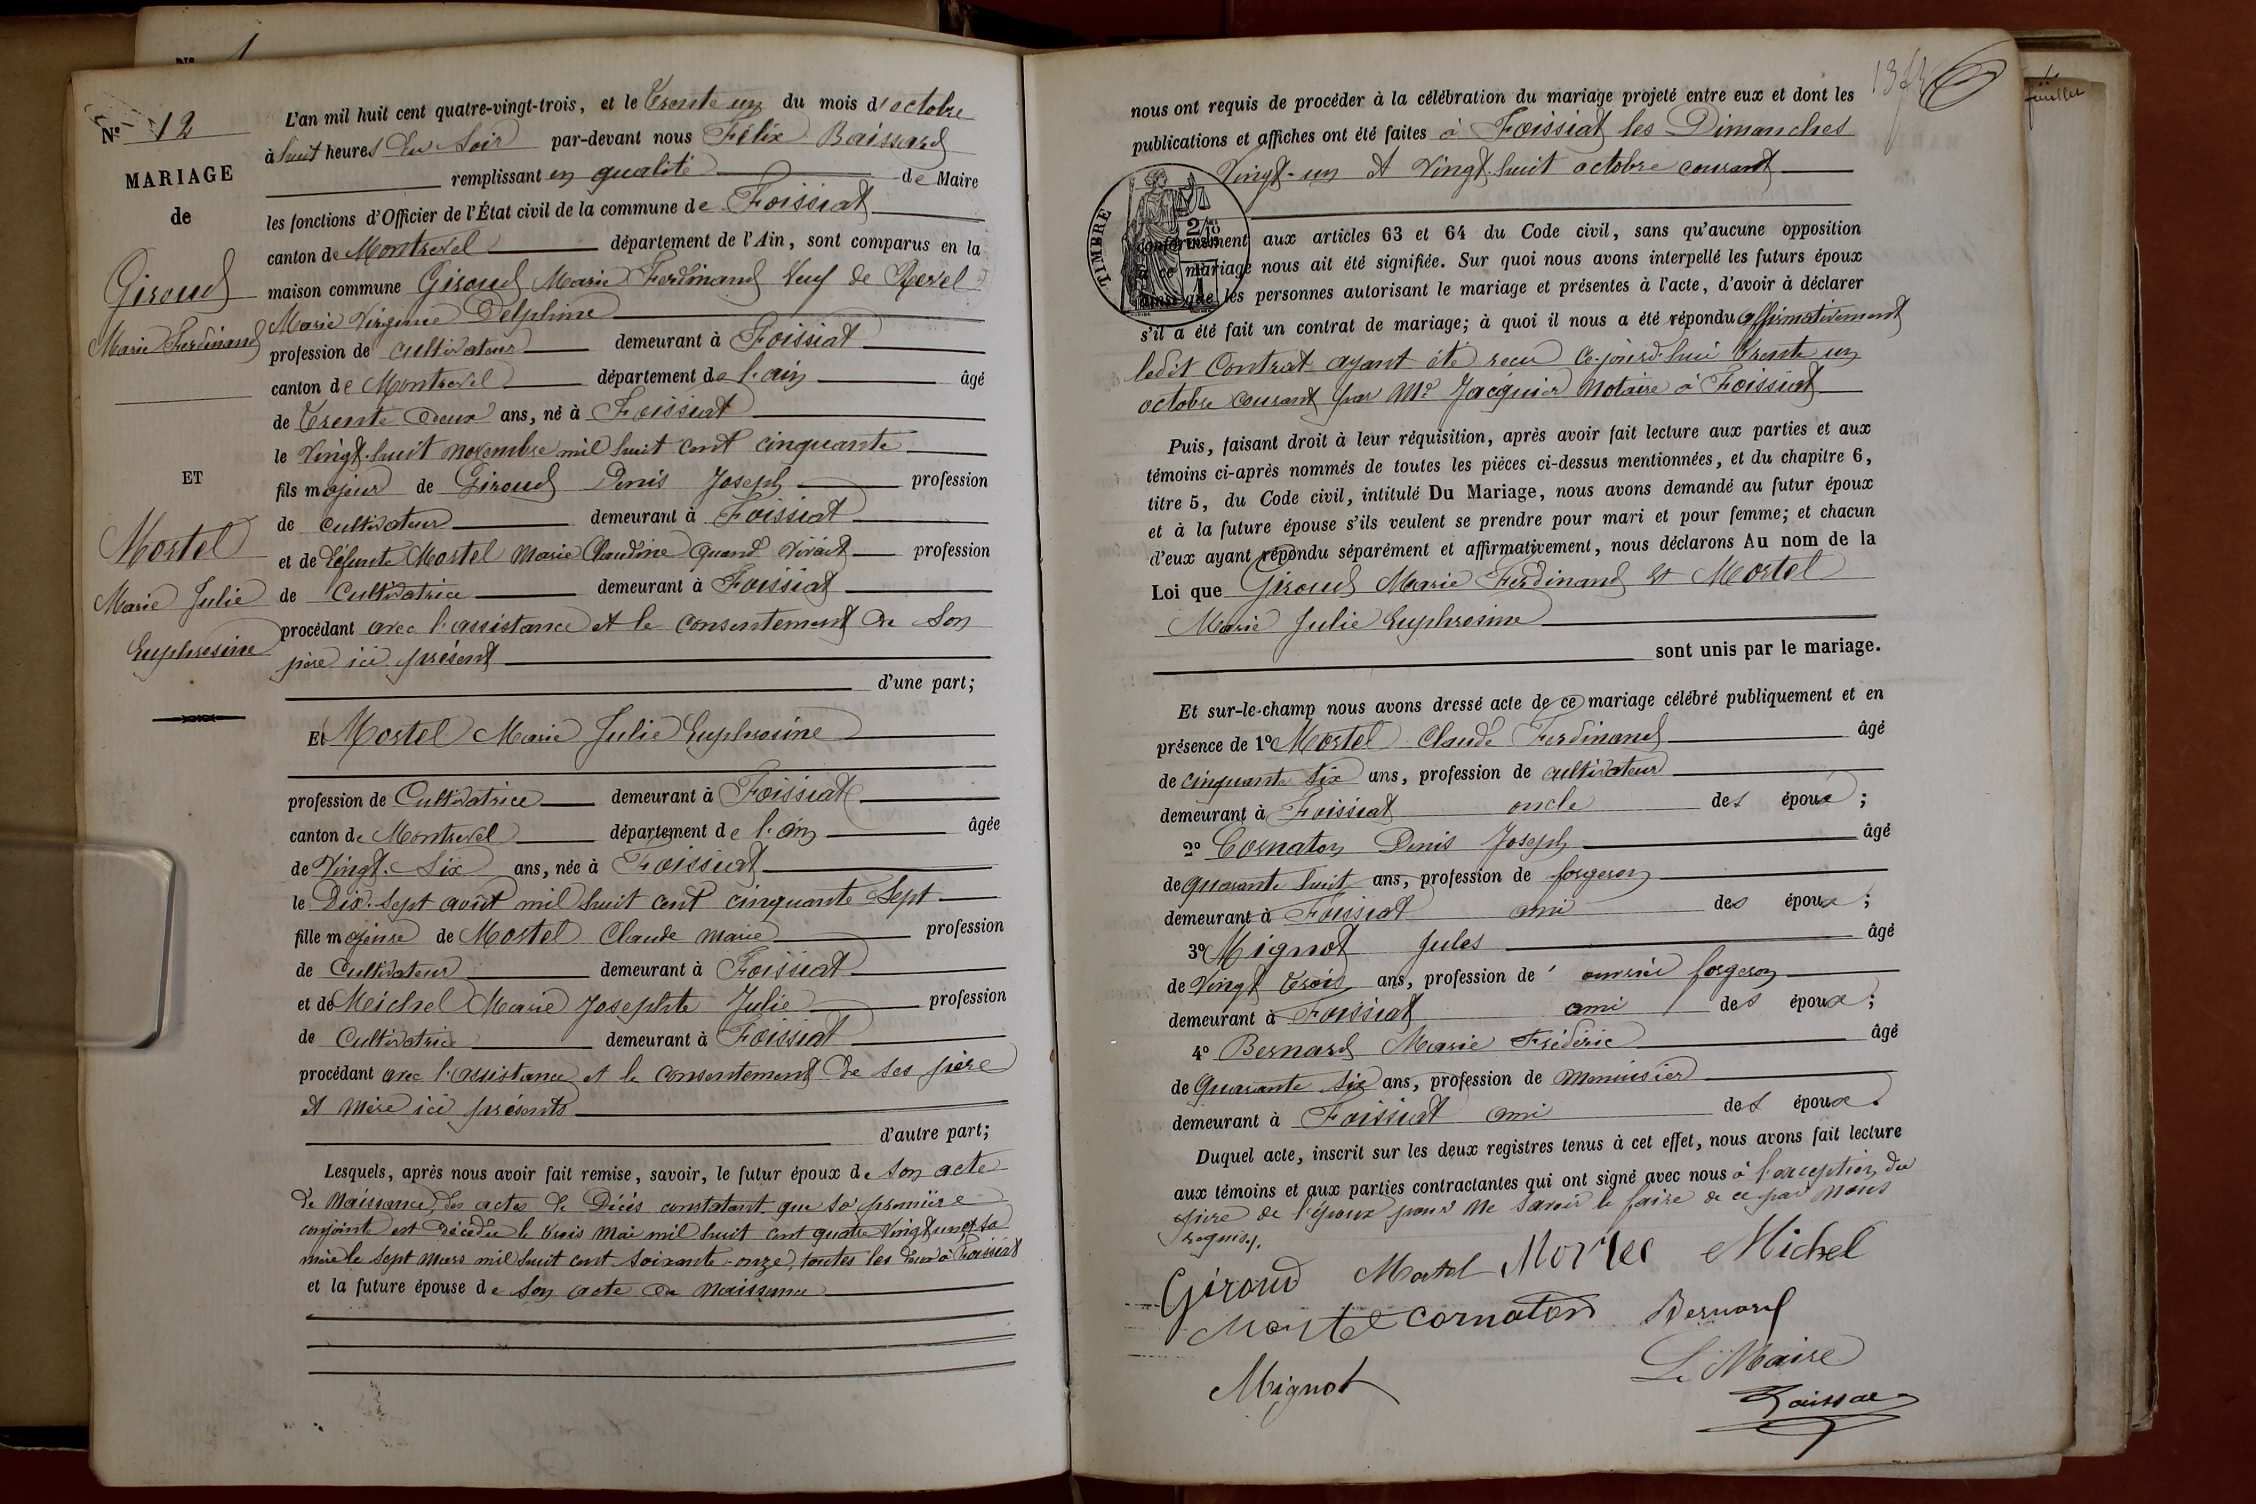 N° 12
MARIAGE
de
Giroud
Marie Ferdinand
ET
Mortel
Marie Julie
Euphrosine
L'an mil huit cent quatre-vingt-trois, et le Trente un du mois d'octobre
à huit heures du Soir par-devant nous Félix Boissard
remplissant en qualité de Maire
les fonctions d'Officier de l'État civil de la commune de Foissiat
canton de Montrevel département de l'Ain, sont comparus en la
maison commune Giroud Marie Ferdinand Veuf de Revel
Marie Virginie Delphine
profession de cultivateur demeurant à Foissiat
canton de Montrevel département de l'ain âgé
de Trente Deux ans, né à Foissiat
le Vingt-huit novembre mil huit cent cinquante
fils majeur de Giroud Denis Joseph profession
de cultivateur demeurant à Foissiat
et de Défunte Mortel Marie Claudine quand vivait profession
de Cultivatrice demeurant à Foissiat
procédant avec l'assistance et le consentement de Son
père ici présent
d'une part;
Et Mortel Marie Julie Euphrosine
profession de Cultivatrice demeurant à Foissiat
canton de Montrevel département de l'ain âgée
de Vingt-Six ans, née à Foissiat
le Dix-Sept août mil huit cent cinquante Sept
fille majeure de Mortel Claude Marie profession
de Cultivateur demeurant à Foissiat
et de Michel Marie Josephte Julie profession
de Cultivatrice demeurant à Foissiat
procédant avec l'assistance et le consentement de ses père
et mère ici présents
d'autre part;
Lesquels, après nous avoir fait remise, savoir, le futur époux de Son acte
de Naissance, des actes de Décès constatant que sa première
conjointe est décédée le trois Mai mil huit cent quatre Vingt un et sa
mère le sept Mars mil huit cent soixante-onze, toutes les deux à Foissiat
et la future épouse de Son acte de Naissance
nous ont requis de procéder à la célébration du mariage projeté entre eux et dont les
publications et affiches ont été faites à Foissiat les Dimanches
Vingt-un et Vingt-huit octobre courant
TIMBRE
conformément aux articles 63 et 64 du Code civil, sans qu'aucune opposition
à ce mariage nous ait été signifiée. Sur quoi nous avons interpellé les futurs époux
ainsi que les personnes autorisant le mariage et présentes à l'acte, d'avoir à déclarer
s'il a été fait un contrat de mariage; à quoi il nous a été répondu affirmativement
ledit Contrat ayant été reçu ce-jourd'hui trente un
octobre courant par Me Jacquier Notaire à Foissiat
Puis, faisant droit à leur réquisition, après avoir fait lecture aux parties et aux
témoins ci-après nommés de toutes les pièces ci-dessus mentionnées, et du chapitre 6,
titre 5, du Code civil, intitulé Du Mariage, nous avons demandé au futur époux
et à la future épouse s'ils veulent se prendre pour mari et pour femme; et chacun
d'eux ayant répondu séparément et affirmativement, nous déclarons Au nom de la
Loi que Giroud Marie Ferdinand et Mortel
Marie Julie Euphrosine
sont unis par le mariage.
Et sur-le-champ nous avons dressé acte de ce mariage célébré publiquement et en
présence de 1° Mortel Claude Ferdinand âgé
de cinquante six ans, profession de cultivateur
demeurant à Foissiat oncle des époux;
2° Cornaton Denis Joseph âgé
de quarante huit ans, profession de forgeron
demeurant à Foissiat ami des époux;
3° Mignot Jules âgé
de Vingt trois ans, profession de ouvrier forgeron
demeurant à Foissiat ami des époux;
4° Bernard Marie Frédéric âgé
de quarante six ans, profession de Menuisier
demeurant à Foissiat ami des époux.
Duquel acte, inscrit sur les deux registres tenus à cet effet, nous avons fait lecture
aux témoins et aux parties contractantes qui ont signé avec nous à l'exception du
père de l'époux pour ne savoir le faire de ce par nous
requis.
Giroud Mortel Mortel Michel
Mortel cornaton Bernard
Le Maire
Mignot
Boissard
feuillet